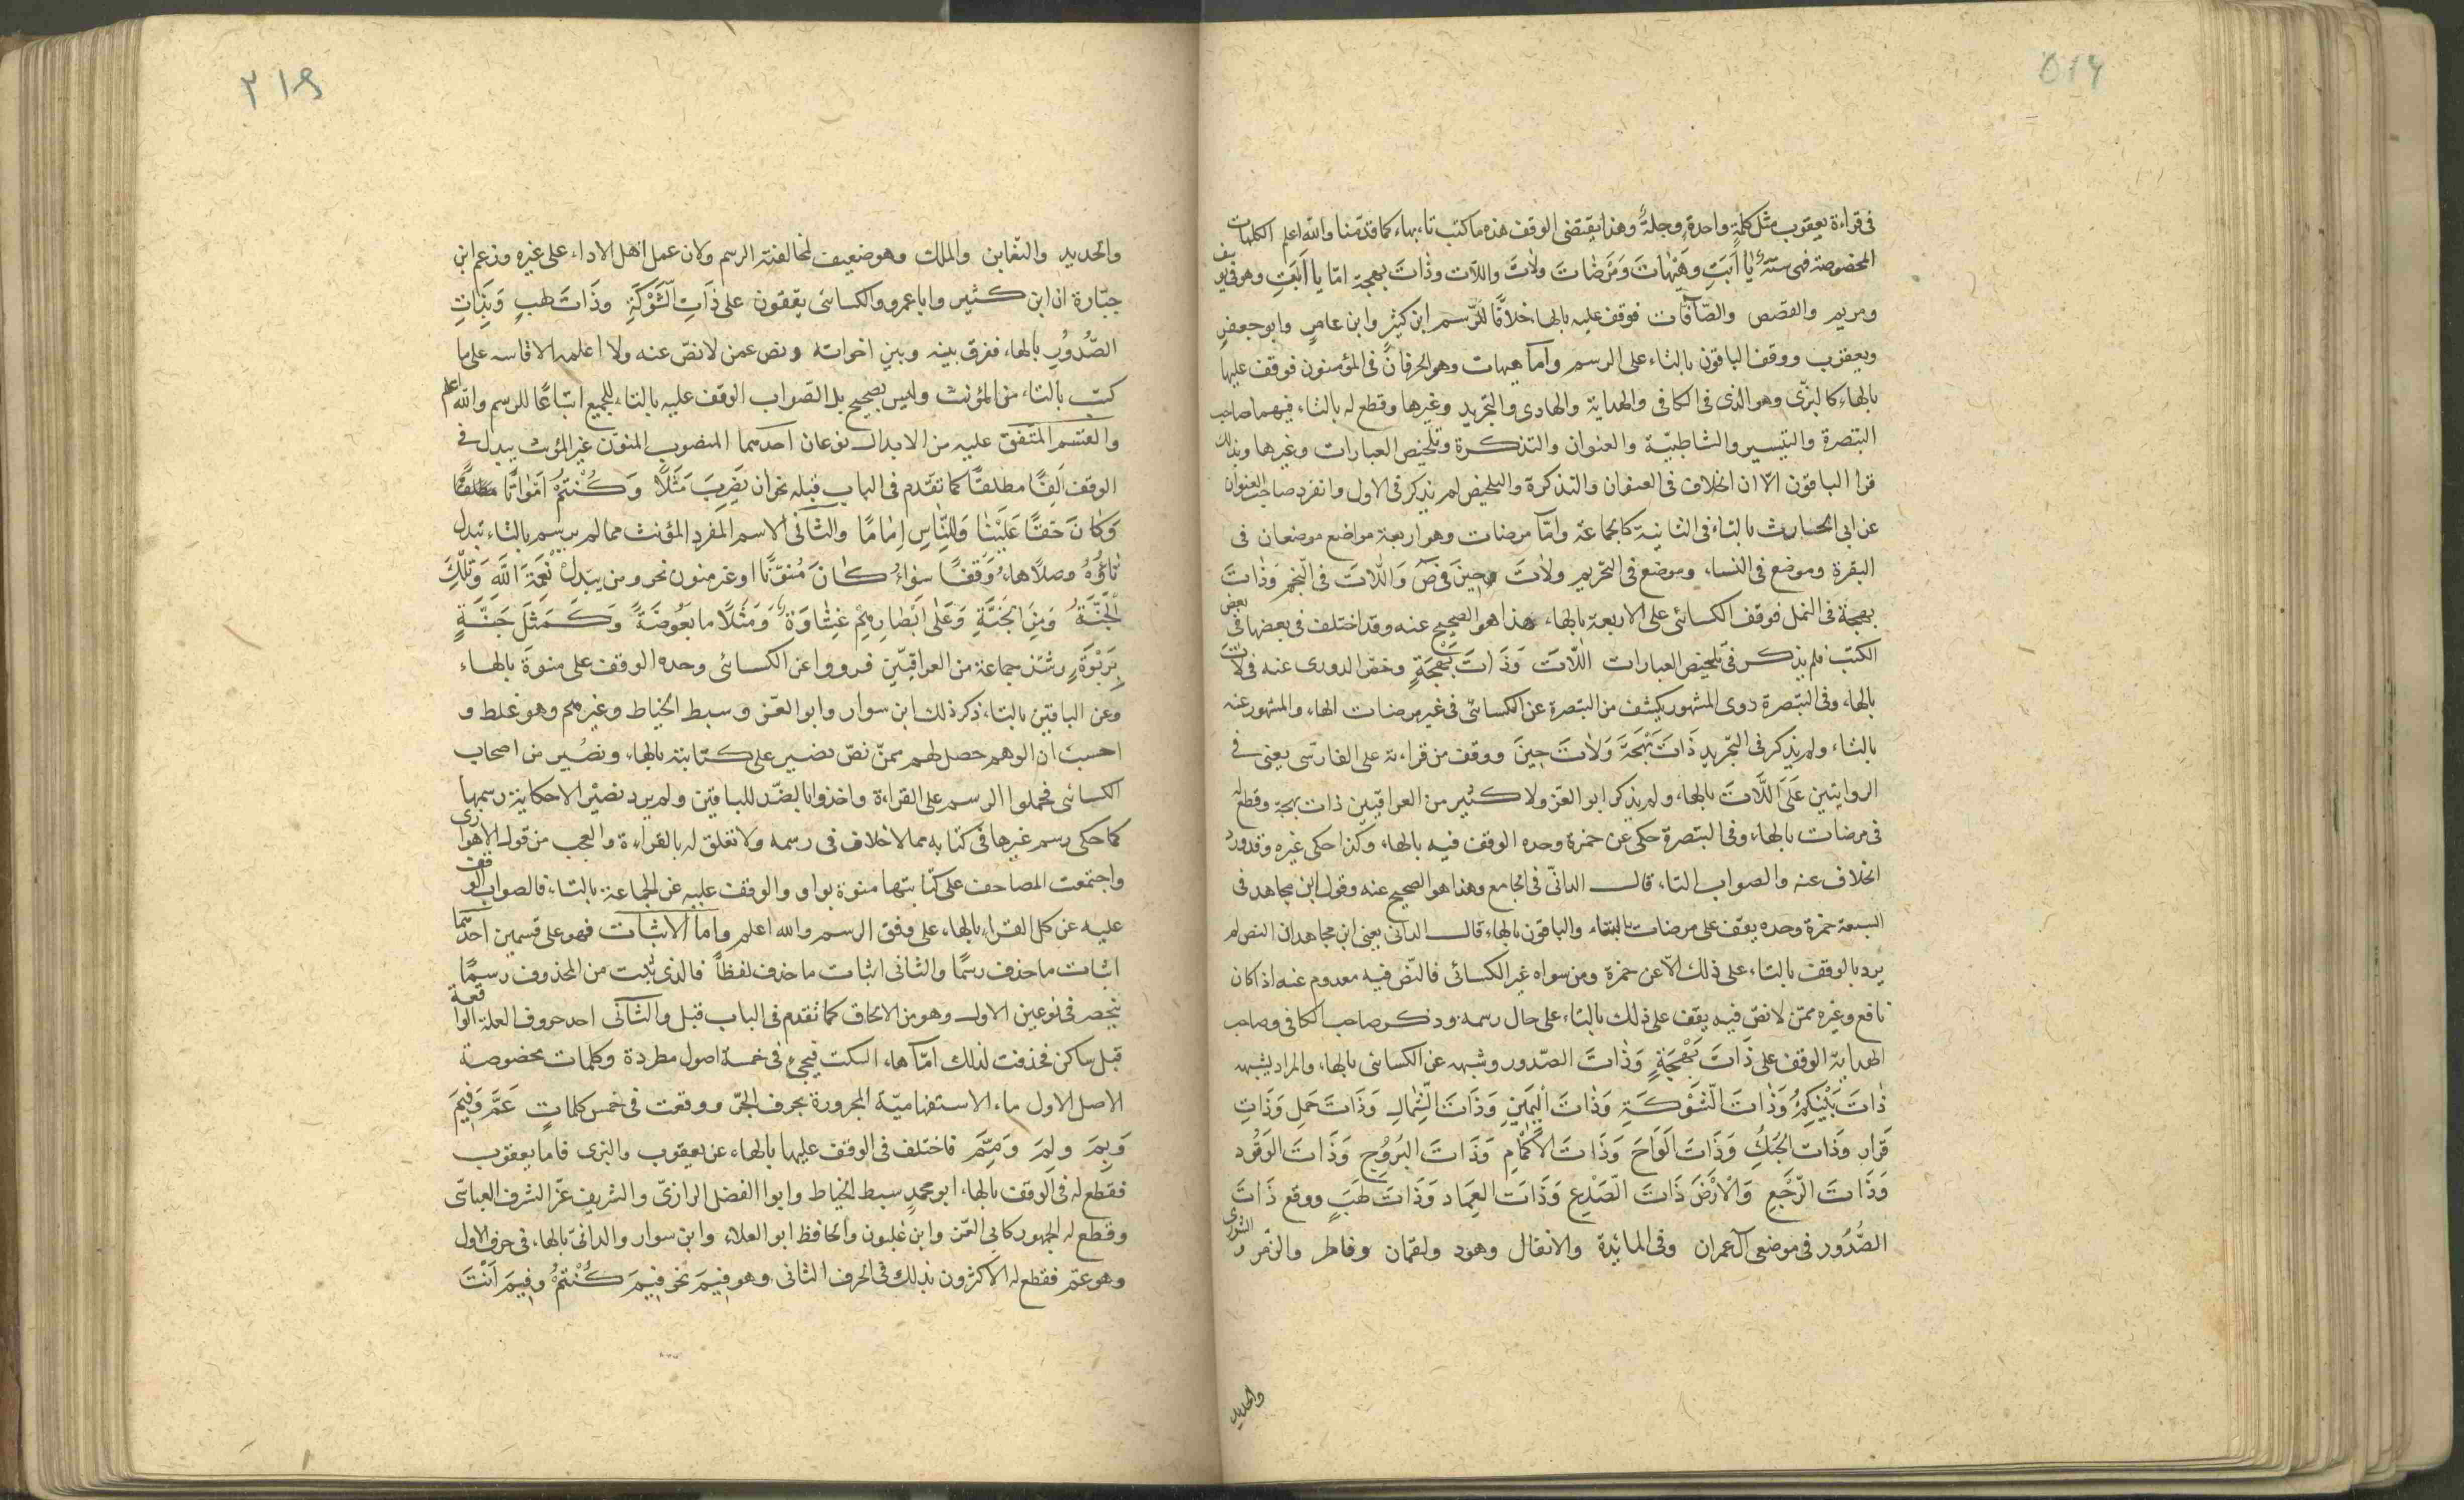 في قراءة يعقوب مثل كلمة واحدة وجملة وهذا يقتضي الوقف هذه ما كتب تاء بهاء كما قدّمنا والله اعلم الكلمات
المخصوصة فهي ستّة يا اَبَتِ وَهَيْهَاتَ وَمَرْضَات وَلَاتَ واللّات وذَاتَ بهجة امّا يا اَبَتِ وهو في يوسف
ومريم والقصص والصّافّات فوقف عليه بالهاء خلافًا للرّسم ابن كثير وابن عامر وابو جعفر
ويعقوب ووقف الباقون بالتاء على الرسم وامّا هيهات وهو الحرفان في المؤمنون فوقف عليها
بالهاء كالبزّى وهو الذى في الكافي والهداية والهادى والتجريد وغيرها وقطع له بالتاء فيهما صاحب
التبصرة والتيسير والشاطبيّة والعنوان والتذكرة وتلخيص العبارات وغيرها وبذلك
قرا الباقون الّا ان الخلاف في العنوان والتذكرة والتلخيص لم يذكر في الاول وانفرد صاحب العنوان
عن ابى الحارث بالتاء في الثانية كالجماعة وامّا مرضات وهو اربعة مواضع موضعان في
البقرة وموضع في النساء وموضع في التحريم ولَاتَ حِينَ في صَ وَاللّاتَ في النجم وَذَاتَ
بهجة في النمل فوقف الكسائى على الاربعة بالهاء هذا هو الصحيح عنه وقد اختلف في بعضها في بعض
الكتب فلم يذكر في تلخيص العبارات اللّاتَ وَذَاتَ بَهْجَةٍ وخص الدورى عنه في لات
بالهاء وفي التبصرة روى المشهور بكشف من التبصرة عن الكسائى في غير مرضات الهاء والمشهور عنه
بالتاء ولم يذكر في التجريد ذَاتَ بَهْجَةَ وَلَاتَ حِينَ ووقف من قراءته على الفارسى يعنى في
الروايتين عَلَى اللّاتَ بالهاء ولم يذكر ابو العزّ ولا كثير من العراقيين ذات بهجة وقطع له
في مرضات بالهاء وفي التبصرة حكى عن حمزة وحده الوقف فيه بالهاء وكذا حكى غيره وقد ورد
الخلاف عنه والصواب التاء قال الدانّى في الجامع وهذا هو الصحيح عنه وقول ابن مجاهد في
السبعة حمزة وحده يقف على مرضات بالتاء والباقون بالهاء قال الدانى يعنى ابن مجاهد ان النص لم
يرد بالوقف بالتاء على ذلك الّا عن حمزة ومن سواه غير الكسائى فالنّص فيه معدوم عنه اذ كان
نافع وغيره ممّن لا نصّ فيه يقف على ذلك بالتاء على حال رسمه وذكر صاحب الكافي وصاحب
الهداية الوقف على ذَاتَ بَهْجَةٍ وَذَاتَ الصّدور وشبهه عن الكسائى بالهاء والمراد بشبهه
ذَاتَ بَيْنِكمُ وَذَاتَ الشَّوْكَةِ وَذَاتَ اليَمِينِ وَذَاتَ الشِّمَالِ وَذَاتَ حَمل وَذَاتِ
قَرَار وَذات الحُبُكِ وَذَاتَ اَلوَاحَ وَذَاتَ الاَكمَامِ وَذَاتَ البُرُوُجِ وَذَاتَ الوَقُود
وَذَاتَ الرّجْعِ وَالْارْضَ ذَاتَ الصّدْعِ وَذَاتَ العِمَاد وَذَاتَ لَهَبٍ ووقع ذَاتَ
الصُّدُور في موضعى آل عمران وفي المائدة والانفال وهود ولقمان وفاطر والزمر والشورى
والحديد
والحديد والتغابن والملك وهو ضعيف لمخالفته الرسم ولان عمل اهل الاداء على غيره وزعم ابن
جبّارة ان ابن كثير وابا عمرو والكسائى يقفون على ذَاتِ الشّوْكَةِ وذَاتَ لهبٍ وَبِذَاتِ
الصُّدُوُرِ بالهاء ففرق بينه وبين اخواته ونص عمن لا نصّ عنه ولا اعلمه الا قاسه على ما
كتب بالتاء من المؤنث وليس بصحيح بل الصّواب الوقف عليه بالتاء للجميع اتباعًا للرسم والله اعلم
والقسم المتّفق عليه من الابدال نوعان احدهما المنصوب المنوّن غير المؤنث يبدل في
الوقف اَلِفًا مطلقًا كما تقدم في الباب قبله نحو ان يَضرِبَ مَثَلًا وَكُنْتمُ اَموَاتًا
وَكَانَ حَقًّا عَلَيْنَا وَللنّاسِ اِمَامًا والثانى الاسم المفرد المؤنث مما لم يرسم بالتاء تبدل
تَاؤُهُ وصلًا هاء وَقفًا سَواءُ كانَ مُنوّنًا او غير منون نحو ومن يبَدِلْ نِعْمَةَ اللّهِ وَتلْكَ
الجَنّةُ وَمِنَ الجَنَّةِ وَعَلَى اَبْصَارِهِمْ غِشَاوَةٌ وَمَثَلًا ما بَعُوضَةً وَكَمَثَلَ جَنَّةٍ
بِرَبْوَةٍ وشذ جماعة من العراقيّين فرووا عن الكسائى وحده الوقف على منوةَ بالهاء
وعن الباقين بالتاء ذكر ذلك ابن سوار وابو العزّ وسبط الخياط وغيرهم وهو غلط و
احسبَ ان الوهم حصل لهم ممّن نصّ نصير على كتابته بالهاء ونصُير من اصحاب
الكسائى فحملوا الرسم على القراءة واخذوا بالضدّ للباقين ولم يرد نصيْر الا حكاية رسمها
كما حكى رسم غيرها في كتابه مما لا خلاف في رسمه ولا تعلق له بالقراءة والعجب من قول الاهوازى
واجتمعت المصاحف على كتابتها منوة بواو والوقف عليه عن الجماعة بالتاء فالصواب الوقف
عليه عن كل القراء بالهاء على وفق الرسم والله اعلم وامّا الاثبات فهو على قسمين احدهما
اثبات ما حذف رسمًا والثانى اثبات ما حذف لفظًا فالذى ثبت من المحذوف رسمًا
ينحصر في نوعين الاول وهو من الالحاق كما تقدم في الباب قبل والثانى احد حروف العلة الواقعة
قبل ساكن فحذفت لذلك امّا هاء السكت فيجىءُ في خمسة اصول مطردة وكلمات مخصوصة
الاصل الاول ماء الاستفهاميّة المجرورة بحرف الجرّ ووقعت في خمس كلماتٍ عَمَّ وَفِيمَ
وَبِمَ ولِمَ وَمِمَّ فاختلف في الوقف عليها بالهاء عن يعقوب والبزى فاما يعقوب
فقطع له في الوقف بالهاء ابو محمدٍ سبط الخياط وابوا الفضل الرازىّ والشريف عزّ الشرف العبّاسّى
وقطع له الجمهور كابى العزّ وابن غلبون والحافظ ابو العلاء وابن سوار والدانىّ بالهاء في حرف الاول
وهو عمّ فقطع له الاكثرون بذلك في الحرف الثانى وهو فِيمَ نحو فِيمَ كُنْتمُ وفِيمَ اَنْتَ